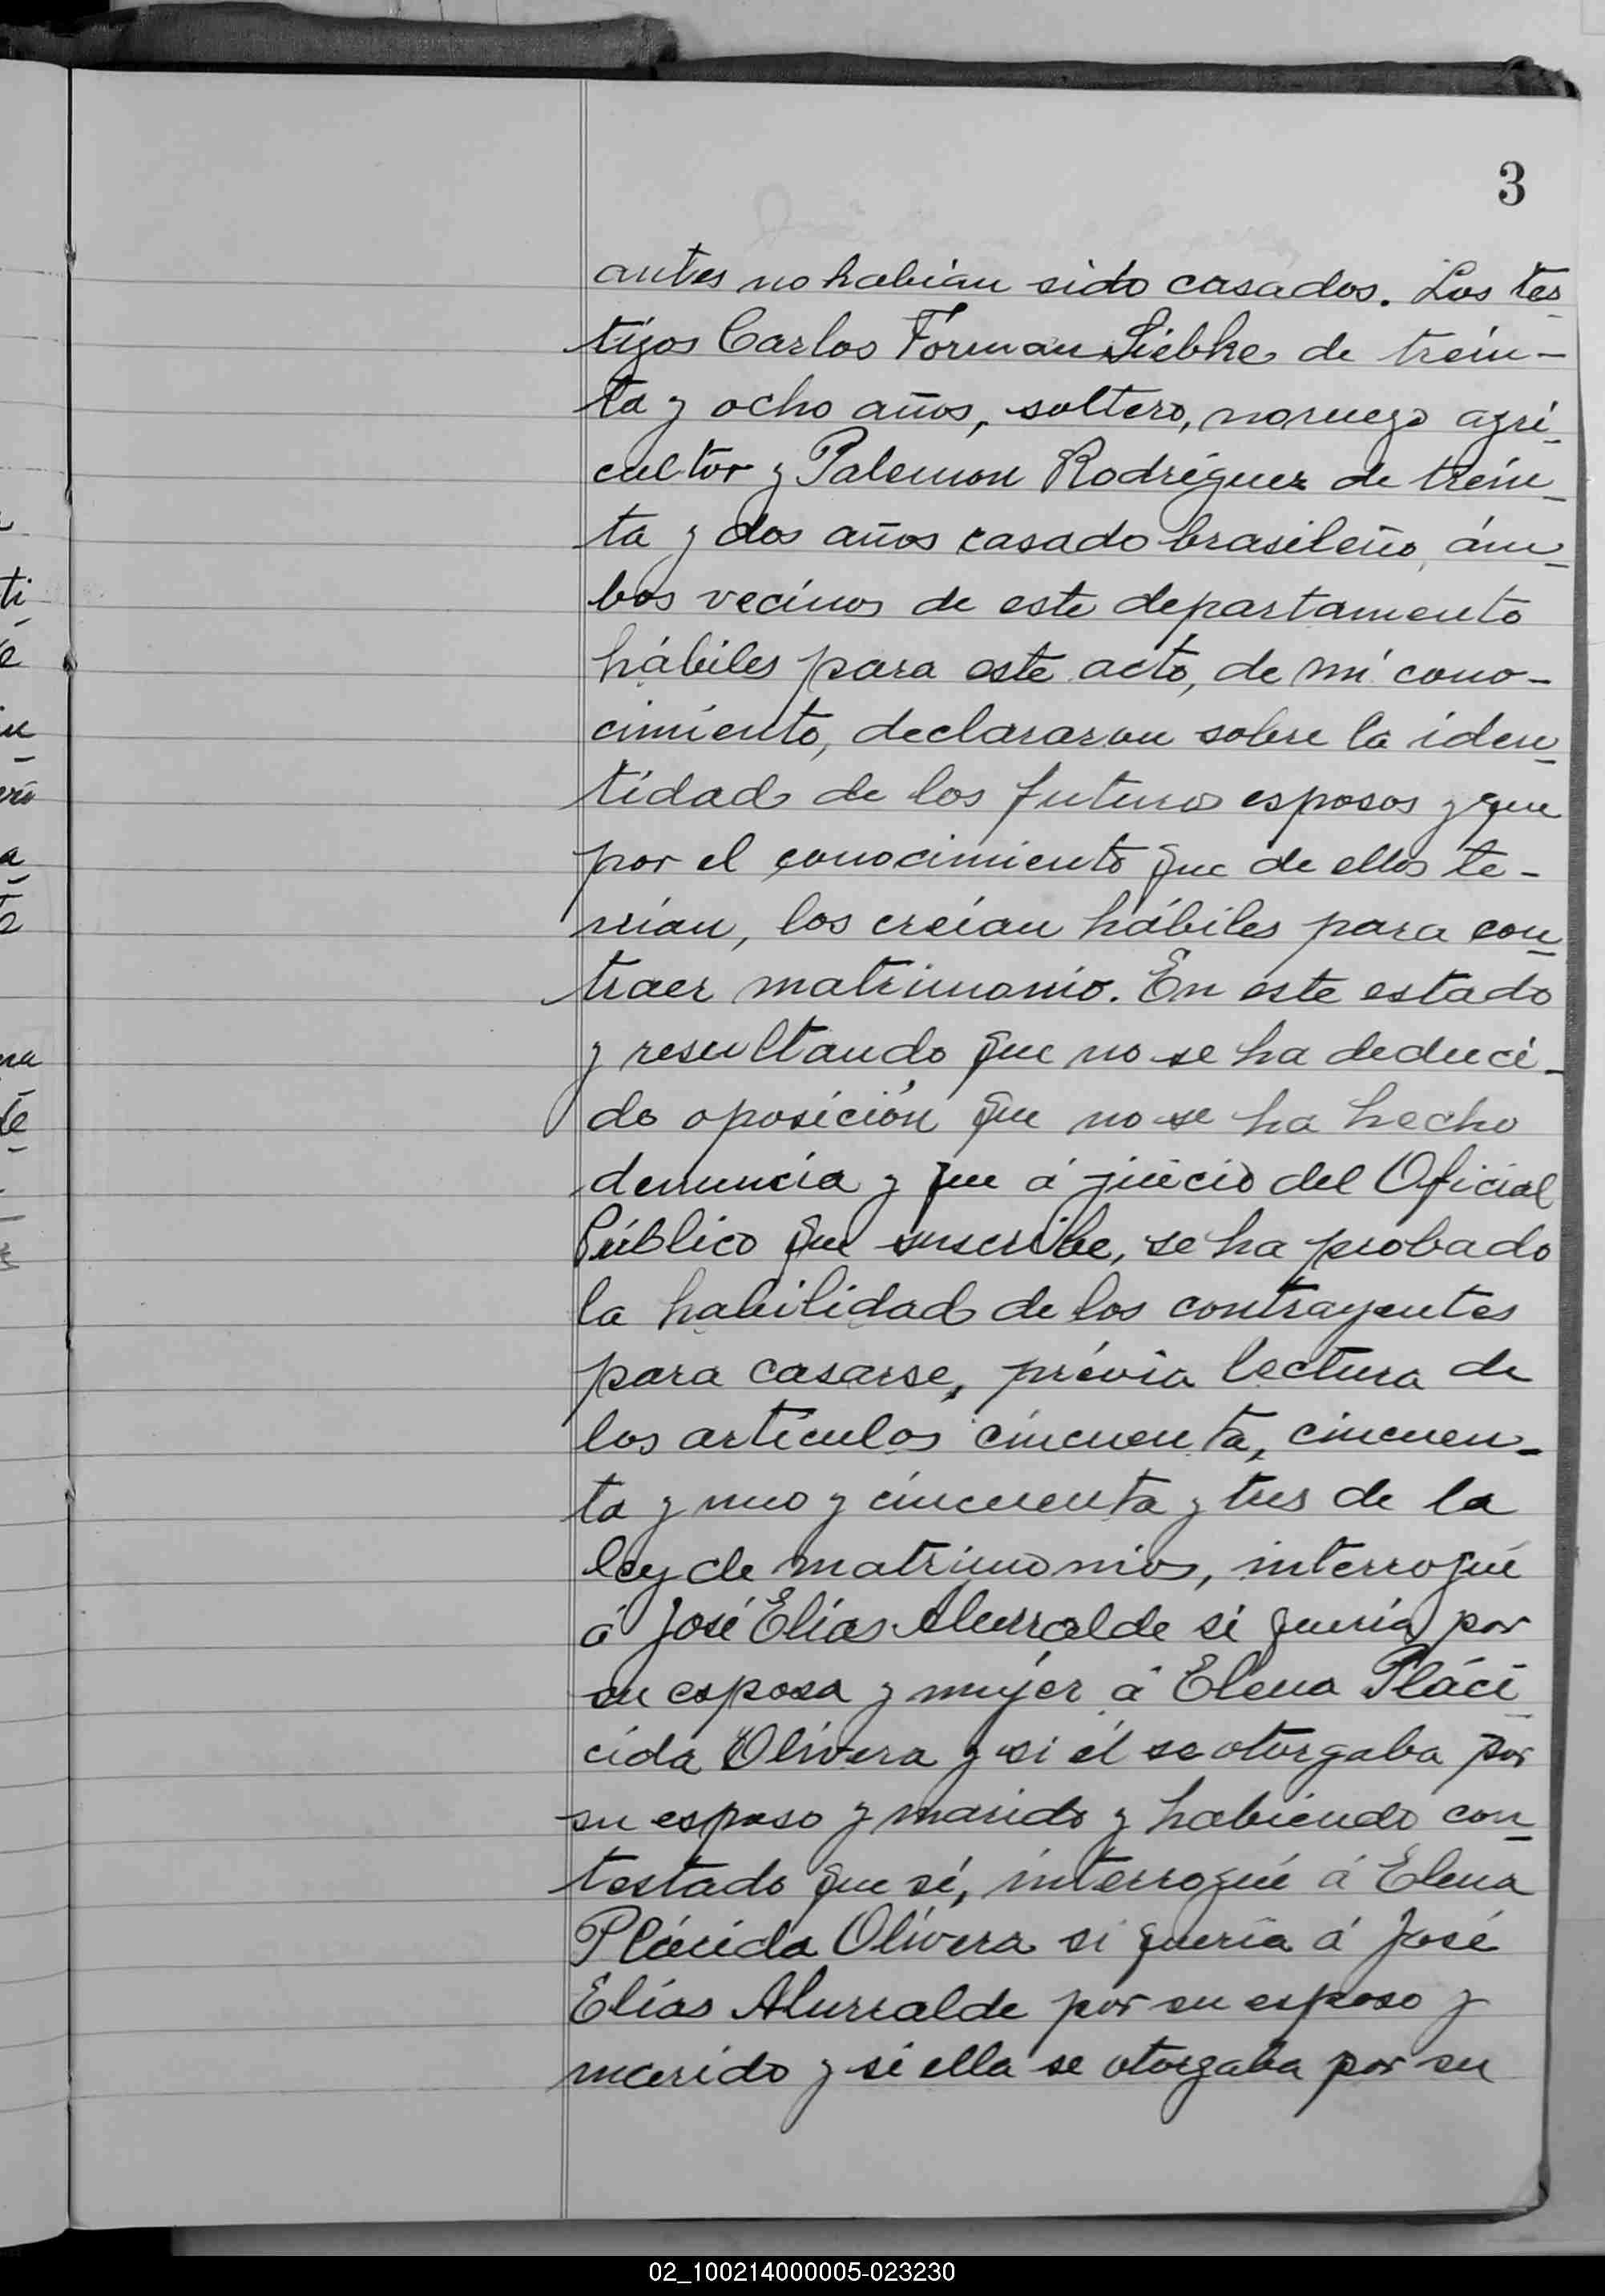 3
antes no habian sido casados. Los tes
tigos Carlos Forman Liebke de trein-
ta y ocho años, soltero, noruego agri
cultor y Palemon Rodriguez de trein
ta y dos años casado brasileño, ám
bos vecinos de este departamento
hábiles para este acto, de mi cono-
cimiento, declararon sobre la iden
tidad de los futuros esposos y que
por el conocimiento que de ellos te-
nian, los creian hábiles para con
traer matrimonio. En este estado
y resultando que no se ha deduci-
do oposición que no se ha hecho
denuncia y que á juicio del Oficial
Público que suscribe, se ha probado
la habilidad de los contrayentes
para casarse, prévia lectura de
los artículos cincuenta, cincuen-
ta y uno y cincuenta y tres de la
ley de matrimonios, interrogué
á José Elías Alurralde si queria por
su esposa y mujer á Elena Pláci
cida Olivera y si él se otorgaba por
su esposo y marido y habiendo con
testado que sí, interrogué á Elena
Plácida Olivera si queria á José
Elías Alurralde por su esposo y
marido y si ella se otorgaba por su
02_100214000005-023230